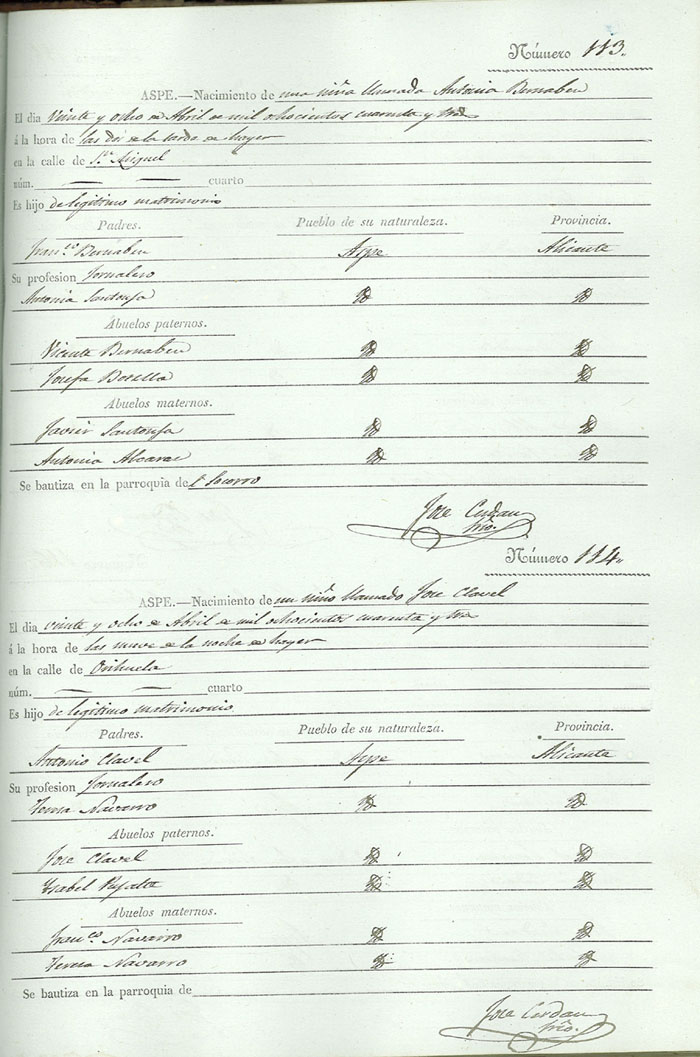 Número 113.
ASPE.—Nacimiento de una niña llamada Antonia Bernabeu
El dia Veinte y ocho de Abril de mil ochocientos cuarenta y tres
á la hora de las dos de la tarde de hayer
en la calle de Sn. Miguel
núm. — — cuarto
Es hijo de legitimo matrimonio
Padres. Pueblo de su naturaleza. Provincia.
Franco. Bernabeu Aspe Alicante
Su profesion Jornalero
Antonia Santonja Yd Yd
Abuelos paternos.
Vicente Bernabeu Yd Yd
Josefa Botella Yd Yd
Abuelos maternos.
Javier Santonja Yd Yd
Antonia Alcaraz Yd Yd
Se bautiza en la parroquia de Socorro
Jose Cerdan
Srio.
Número 114.
ASPE.—Nacimiento de un niño llamado Jose Clavel
El dia veinte y ocho de Abril de mil ochocientos cuarenta y tres
á la hora de las nueve de la noche de hayer
en la calle de Orihuela
núm. — — cuarto
Es hijo de legitimo matrimonio
Padres. Pueblo de su naturaleza. Provincia.
Antonio Clavel Aspe Alicante
Su profesion Jornalero
Teresa Navarro Yd Yd
Abuelos paternos.
Jose Clavel Yd Yd
Ysabel Yd Yd
Abuelos maternos.
Franco. Navarro Yd Yd
Teresa Navarro Yd Yd
Se bautiza en la parroquia de
Jose Cerdan
Srio.